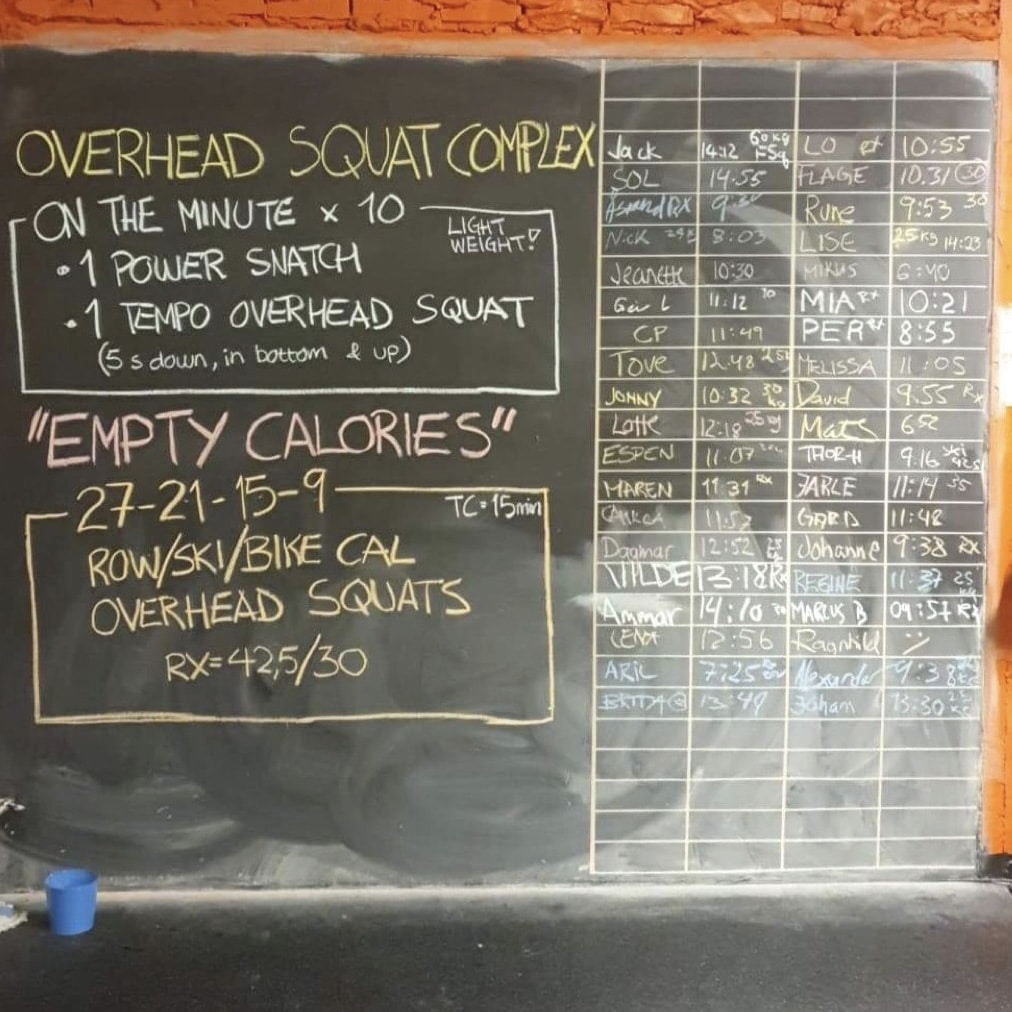 OVERHEAD SQUAT COMPLEX
ON THE MINUTE x 10
LIGHT
WEIGHT!
• 1 POWER SNATCH
• 1 TEMPO OVERHEAD SQUAT
(5 s down, in bottom & up)
"EMPTY CALORIES"
27-21-15-9
TC=15min
ROW/SKI/BIKE CAL
OVERHEAD SQUATS
RX=42,5/30
Jack 14:12 60kg LO 10:55
SOL 14.55 10.31 30
RX Rune 9:53 30
Nick 8:03 LISE 25kg 14:23
Jeanette 10:30 6:40
11:12 MIA RX 10:21
CP 11:49 PER RX 8:55
Tove 12.48 MELISSA 11:05
JONNY 10:32 30 kg David 9.55 Rx
12:18 Mats 652
ESPEN 11.07 THOR-H 9.16
MAREN 11:31 Rx JARLE 11:14 35
GARD 11:48
Dagmar 12:52 Johanne 9:38 RX
VILDE 13:18 Rx REGINE 11:37 25 kg
Ammar 14:10 MARCUS B 09:57 RX
LENA 12:56 Ragnhild
7:25 Alexander 9:38
13:49 Johan 13:30